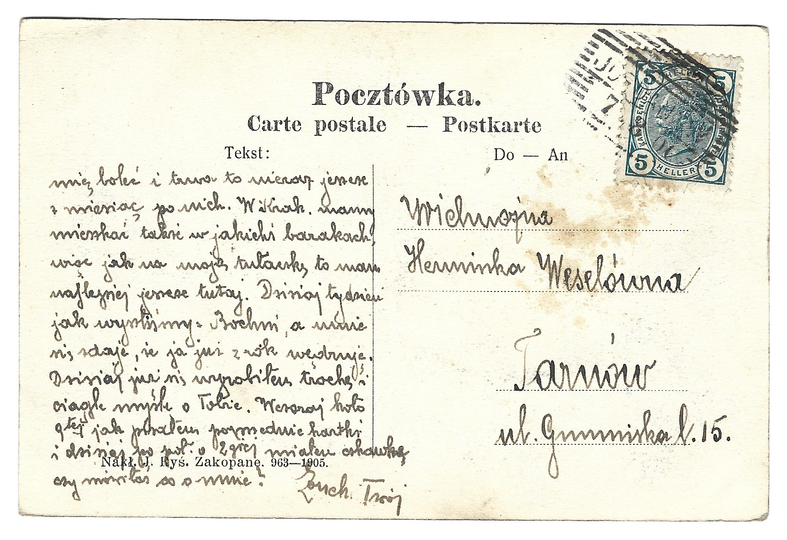 Pocztówka.
Carte postale — Postkarte
Tekst:
Do — An
5 5
5 HELLER 5
7
mię boleć i trwa to nieraz jeszcze
z miesiąc po nich. W Krak. mamy
mieszkać także w jakichś barakach,
więc jak na moją tutaczkę to mam
najlepiej jeszcze tutaj. Dzisiaj tydzień
jak wyszliśmy z Bochni, a mnie
się zdaje, że ja już z rok wędruję.
Dzisiaj już się wyrobiłem trochę i
ciągle myślę o Tobie. Wczoraj koło
9tej jak pisałem poprzednie kartki
i dzisiaj po poł. o 2giej miałem czkawkę
czy mówiłaś co o mnie? Zuch Twój
Nakł. J. Ryś. Zakopane. 963—1905.
Wielmożna
Herminka Weselówna
Tarnów
ul. Gumniska l. 15.